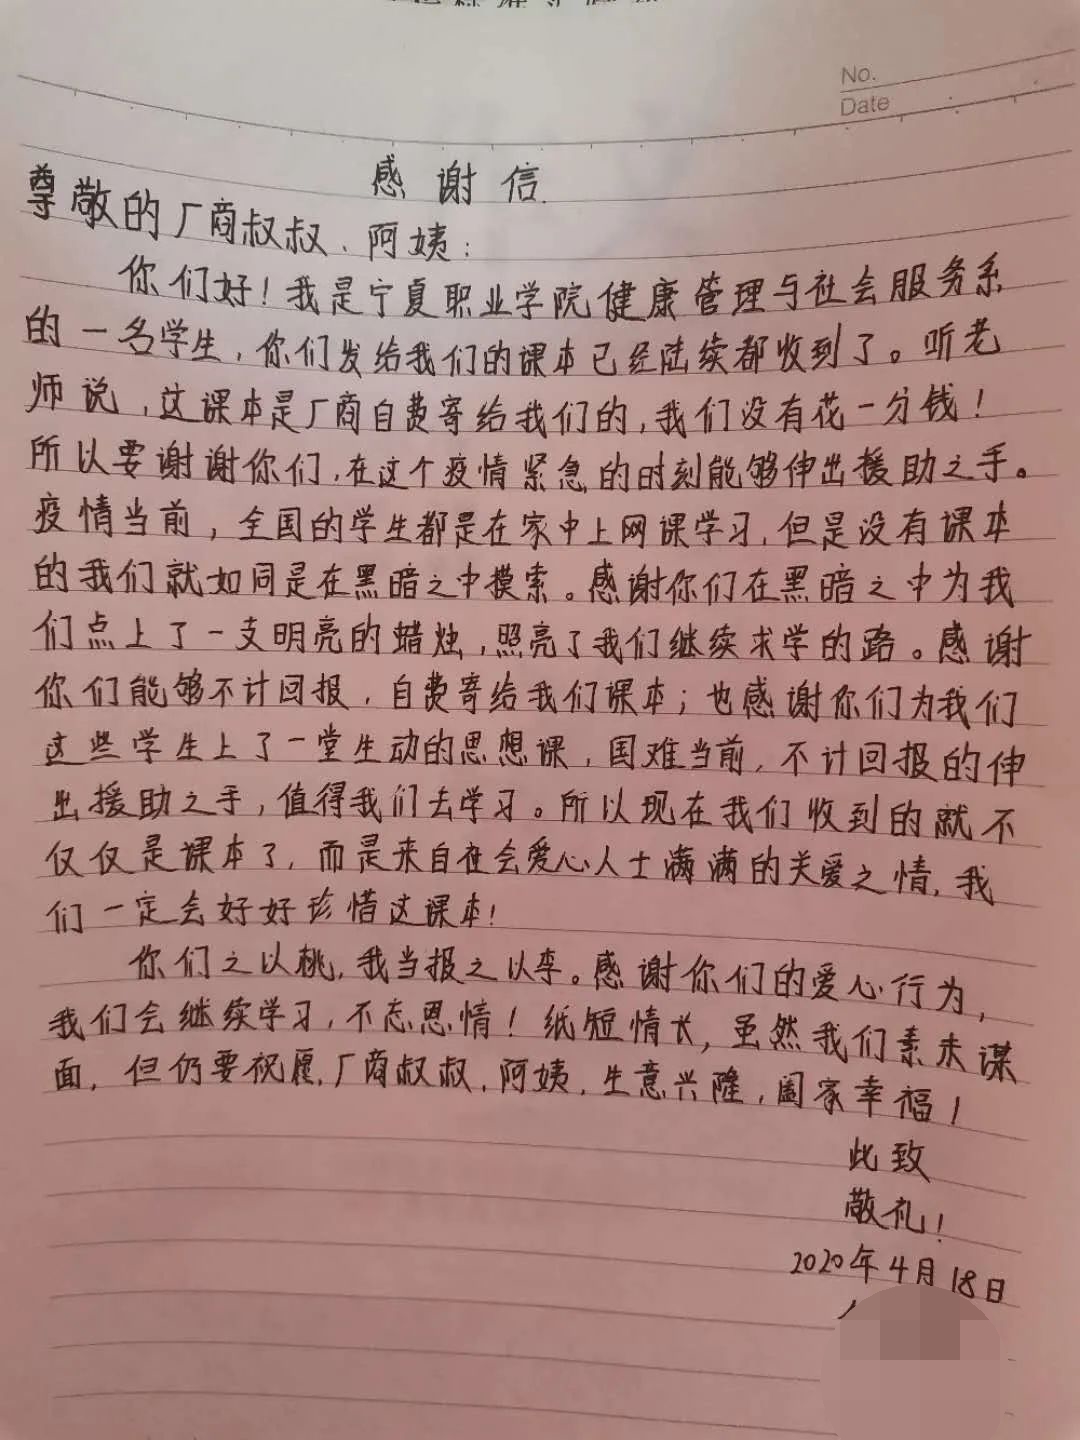 No.
Date
感谢信
尊敬的厂商叔叔、阿姨:
你们好!我是宁夏职业学院健康管理与社会服务系
的一名学生,你们发给我们的课本已经陆续都收到了。听老
师说,这课本是厂商自费寄给我们的,我们没有花一分钱!
所以要谢谢你们,在这个疫情紧急的时刻能够伸出援助之手。
疫情当前,全国的学生都是在家中上网课学习,但是没有课本
的我们就如同是在黑暗之中摸索。感谢你们在黑暗之中为我
们点上了一支明亮的蜡烛,照亮了我们继续求学的路。感谢
你们能够不计回报,自费寄给我们课本;也感谢你们为我们
这些学生上了一堂生动的思想课,国难当前,不计回报的伸
出援助之手,值得我们去学习。所以现在我们收到的就不
仅仅是课本了,而是来自社会爱心人士满满的关爱之情,我
们一定会好好珍惜这课本!
你们之以桃,我当报之以李。感谢你们的爱心行为,
我们会继续学习,不忘恩情!纸短情长,虽然我们素未谋
面,但仍要祝愿,厂商叔叔,阿姨,生意兴隆,阖家幸福!
此致
敬礼!
2020年4月18日